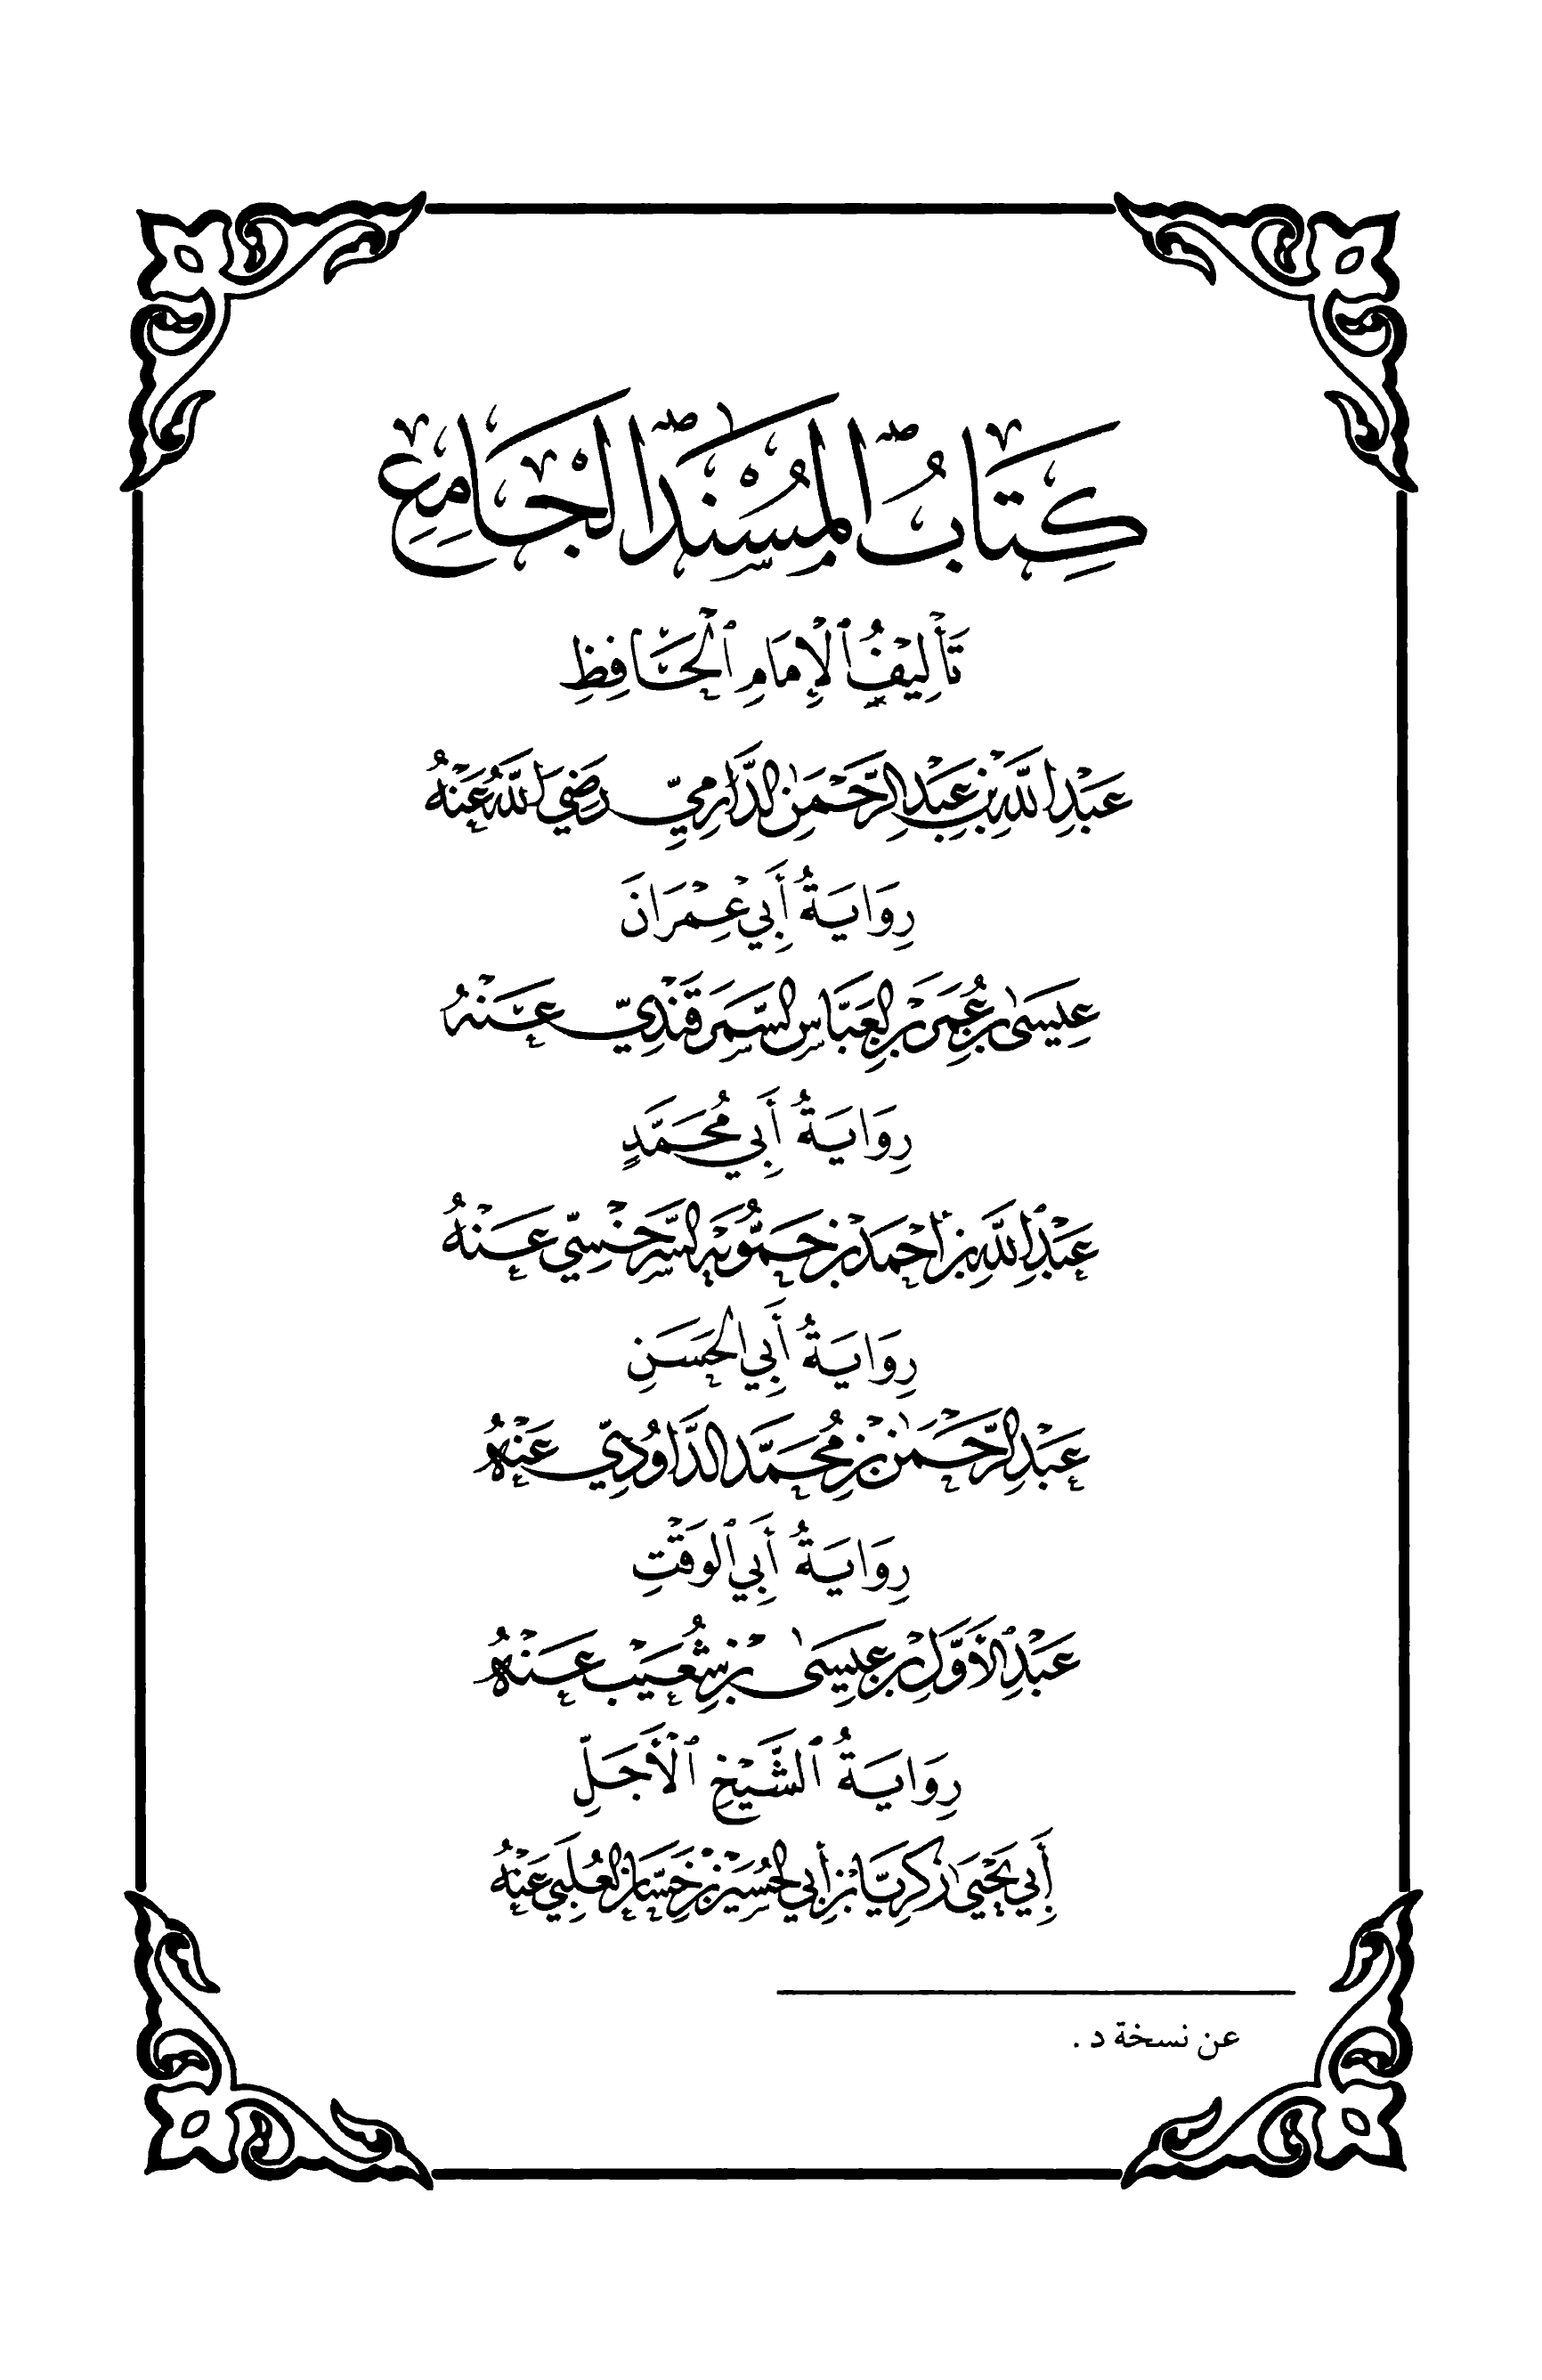 كِتَابُ الْمُسْنَدِ الْجَامِعِ
تَأْلِيْفُ ٱلْإِمَامِ ٱلْحَافِظِ
عَبْدِ اللهِ بْنِ عَبْدِ الرَّحْمٰنِ الدَّارِمِيِّ رَضِيَ اللهُ عَنْهُ
رِوَايَةُ أَبِي عِمْرَانَ
عِيسَىٰ بْنِ عُمَرَ بْنِ الْعَبَّاسِ السَّمَرْقَنْدِيِّ عَنْهُ
رِوَايَةُ أَبِي مُحَمَّدٍ
عَبْدِ اللهِ بْنِ أَحْمَدَ بْنِ حَمُّوْيَه السَّرَخْسِيِّ عَنْهُ
رِوَايَةُ أَبِي الْحَسَنِ
عَبْدِ الرَّحْمٰنِ بْنِ مُحَمَّدِ الدَّاوُدِيِّ عَنْهُ
رِوَايَةُ أَبِي ٱلْوَقْتِ
عَبْدِ ٱلْأَوَّلِ بْنِ عِيسَىٰ بْنِ شُعَيْبٍ عَنْهُ
رِوَايَةُ ٱلشَّيْخِ ٱلْأَجَلِّ
أَبِي يَحْيَىٰ زَكَرِيَّا بْنِ أَبِي الْحُسَيْنِ بْنِ حَسَّانَ الْعُلَبِيِّ عَنْهُ
عن نسخة د .